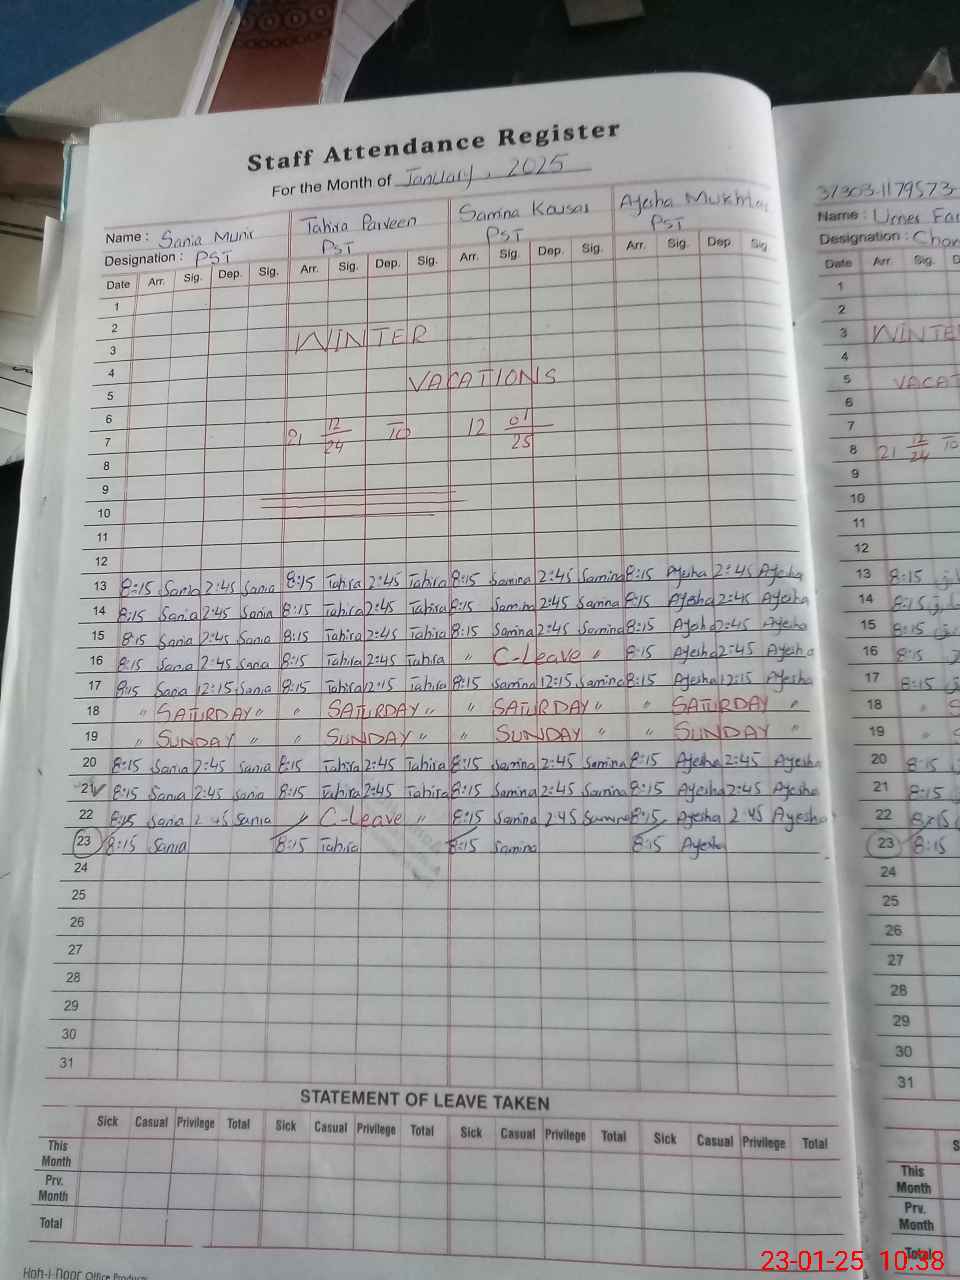 Staff Attendance Register
For the Month of January, 2025
Name: Sania Munir Tahira Parveen Samina Kousar Ayesha Mukhtar
Designation: PST PST PST PST
Date Arr. Sig. Dep. Sig. Arr. Sig. Dep. Sig. Arr. Sig. Dep. Sig. Arr. Sig. Dep Sig
1
2
3 WINTER
4
5 VACATIONS
6
7 21 12/24 To 12 01/25
8
9
10
11
12
13 8:15 Sania 2:45 Sania 8:15 Tahira 2:45 Tahira 8:15 Samina 2:45 Samina 8:15 Ayesha 2:45 Ayesha
14 8:15 Sania 2:45 Sania 8:15 Tahira 2:45 Tahira 8:15 Samina 2:45 Samina 8:15 Ayesha 2:45 Ayesha
15 8:15 Sania 2:45 Sania 8:15 Tahira 2:45 Tahira 8:15 Samina 2:45 Samina 8:15 Ayesha 2:45 Ayesha
16 8:15 Sania 2:45 Sania 8:15 Tahira 2:45 Tahira " C-Leave " 8:15 Ayesha 2:45 Ayesha
17 8:15 Sania 12:15 Sania 8:15 Tahira 12:15 Tahira 8:15 Samina 12:15 Samina 8:15 Ayesha 12:15 Ayesha
18 " SATURDAY " " SATURDAY " " SATURDAY " " SATURDAY "
19 " SUNDAY " " SUNDAY " " SUNDAY " " SUNDAY "
20 8:15 Sania 2:45 Sania 8:15 Tahira 2:45 Tahira 8:15 Samina 2:45 Samina 8:15 Ayesha 2:45 Ayesha
21 8:15 Sania 2:45 Sania 8:15 Tahira 2:45 Tahira 8:15 Samina 2:45 Samina 8:15 Ayesha 2:45 Ayesha
22 8:15 Sania 2:45 Sania " C-Leave " 8:15 Samina 2:45 Samina 8:15 Ayesha 2:45 Ayesha
23 8:15 Sania 8:15 Tahira 8:15 Samina 8:15 Ayesha
24
25
26
27
28
29
30
31
STATEMENT OF LEAVE TAKEN
Sick Casual Privilege Total Sick Casual Privilege Total Sick Casual Privilege Total Sick Casual Privilege Total
This Month
Prv. Month
Total
Koh-i-Noor Office Products
37303-1179573-
Name: Umer
Designation:
Date Arr. Sig.
1
2
3 WINTER
4
5 VACAT
6
7
8 21 12/24 To
9
10
11
12
13 8:15
14 8:15
15 8:15
16 8:15
17 8:15
18 "
19 "
20 8:15
21 8:15
22 8:15
23 8:15
24
25
26
27
28
29
30
31
This Month
Prv. Month
Total
23-01-25 10:38